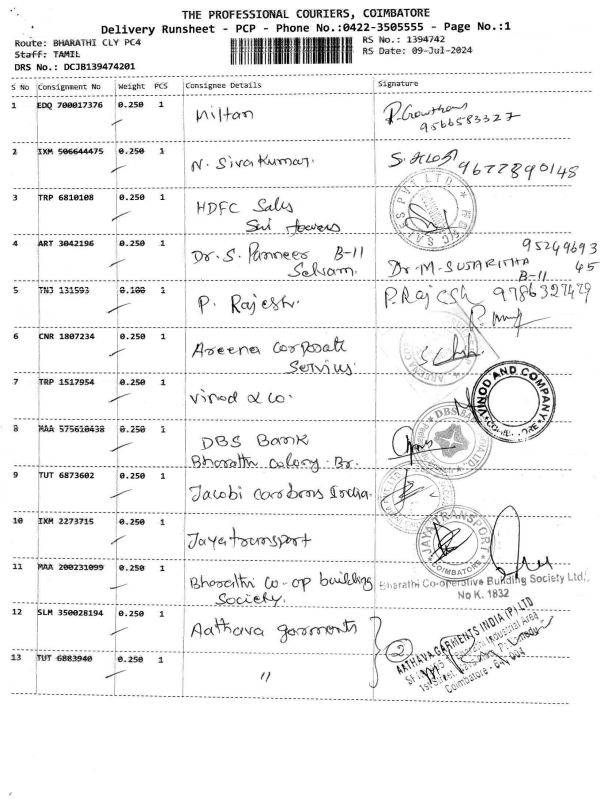 THE PROFESSIONAL COURIERS, COIMBATORE
Delivery Runsheet - PCP - Phone No.:0422-3505555 - Page No.:1
Route: BHARATHI CLY PC4
RS No.: 1394742
Staff: TAMIL
RS Date: 09-Jul-2024
DRS No.: DCJB139474201
S No Consignment No Weight PCS Consignee Details Signature
1 EDQ 700017376 0.250 1 Hiltan
9566583327
2 IXM 506644475 0.250 1 N. Sivakumar.
9677890148
3 TRP 6810108 0.250 1 HDFC Sales
Sri Towers
4 ART 3042196 0.250 1 Dr. S. Panneer B-11
Selvam.
95249693
45
Dr. M. SUJARITHA
B-11
5 TNJ 131593 0.100 1 P. Rajesh.
P. Rajesh 9786327479
6 CNR 1807234 0.250 1 Areena Corporate
Services.
7 TRP 1517954 0.250 1 Vinod & Co.
VINOD AND COMPANY
8 MAA 575610438 0.250 1 DBS Bank
Bharathi Colony. Br.
DBS
9 TUT 6873602 0.250 1 Jacobi Carbons India.
10 IXM 2273715 0.250 1 Jayatransport
JAYA TRANSPORT
COIMBATORE
11 MAA 200231099 0.250 1 Bharathi Co-op building
Society.
Bharathi Co-operative Building Society Ltd.,
No K. 1832
12 SLM 350028194 0.250 1 Aathava garments
2
AATHAVA GARMENTS INDIA (P) LTD
Industrial Area
Coimbatore - 641 004
13 TUT 6883940 0.250 1 "